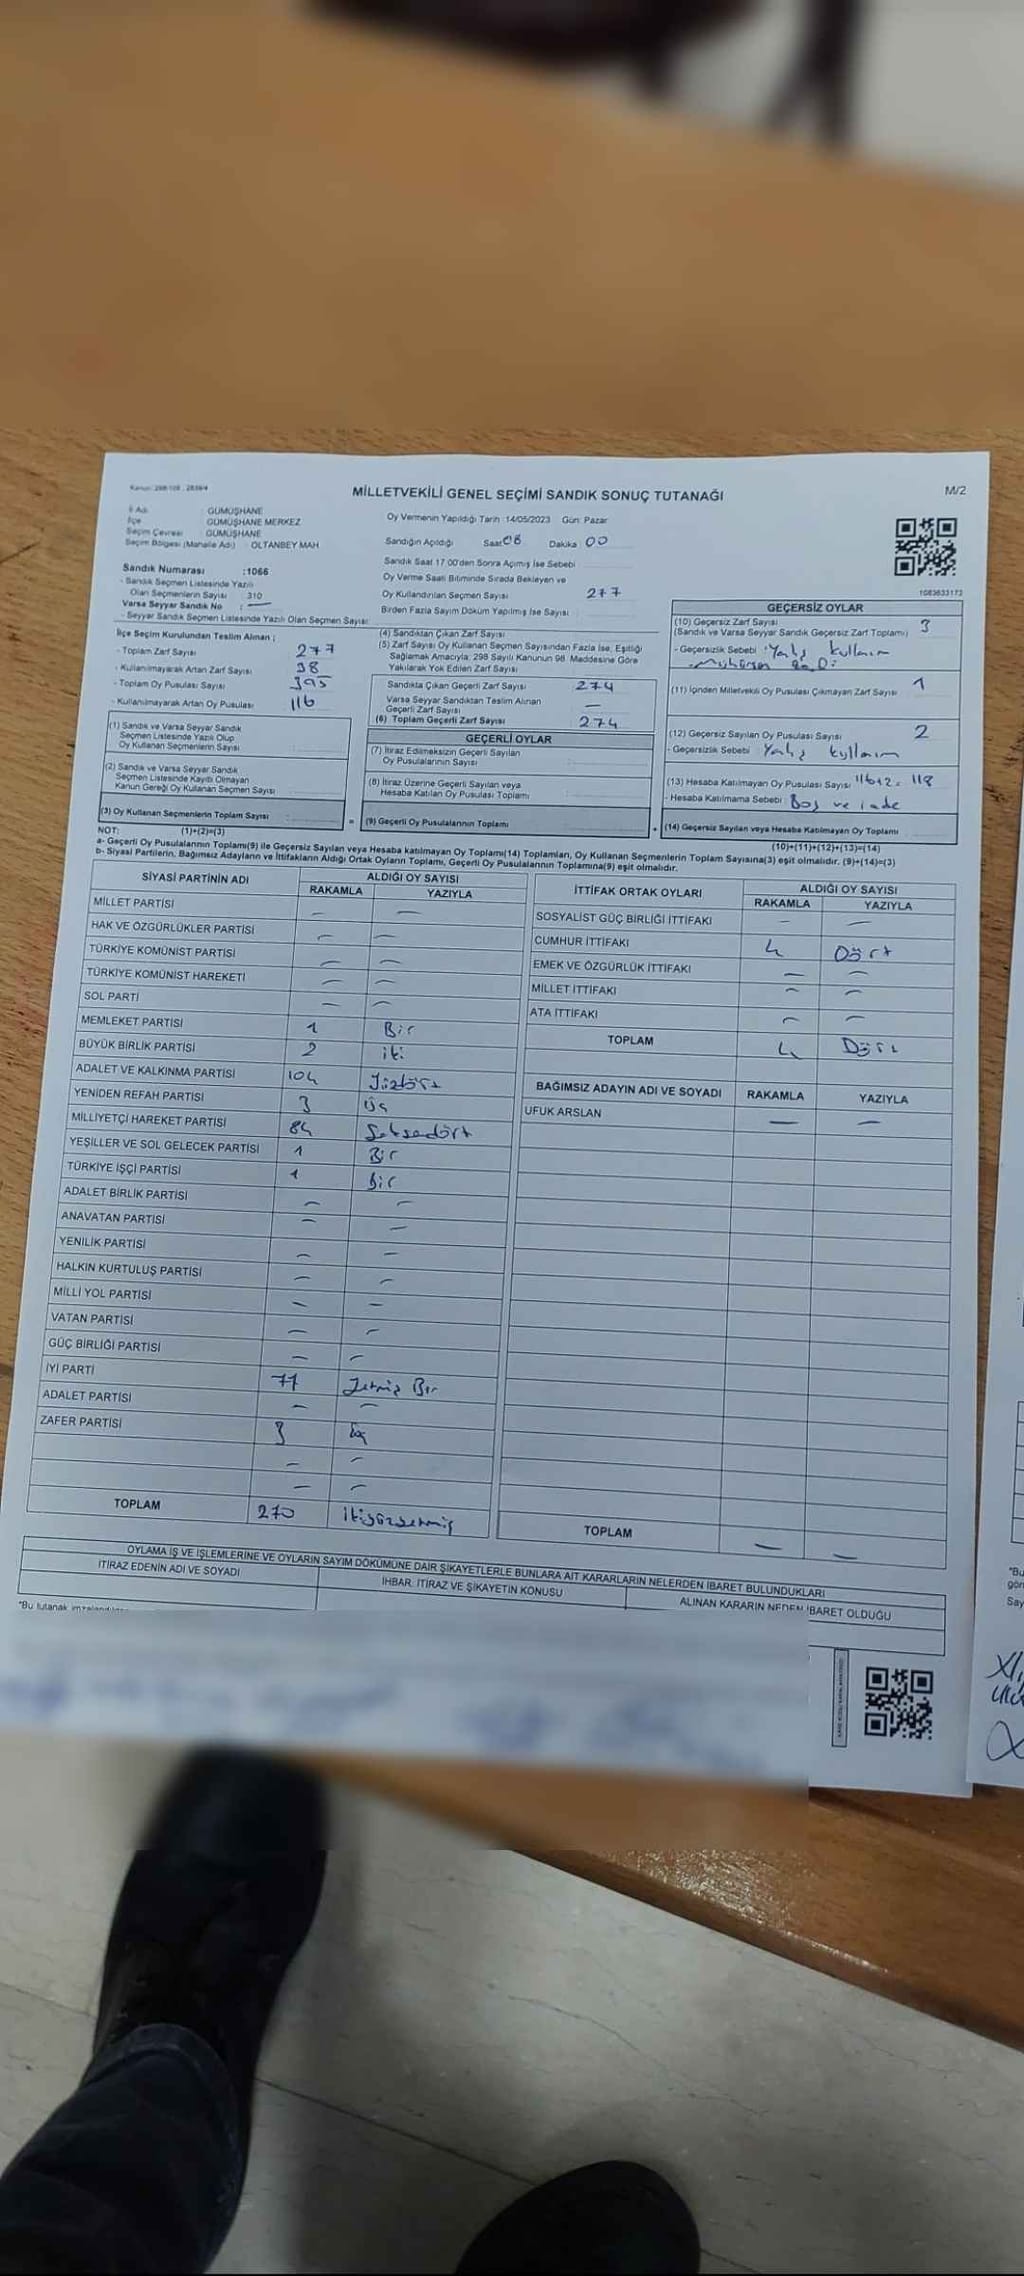 Kanun: 298/105, 2839/4
MİLLETVEKİLİ GENEL SEÇİMİ SANDIK SONUÇ TUTANAĞI
M/2
İl Adı : GÜMÜŞHANE
İlçe : GÜMÜŞHANE MERKEZ
Seçim Çevresi : GÜMÜŞHANE
Seçim Bölgesi (Mahalle Adı) : OLTANBEY MAH
Oy Vermenin Yapıldığı Tarih :14/05/2023 Gün: Pazar
Sandığın Açıldığı Saat 08 Dakika 00
Sandık Saat 17:00'den Sonra Açılmış İse Sebebi
Oy Verme Saati Bitiminde Sırada Bekleyen ve
Oy Kullandırılan Seçmen Sayısı 277
Birden Fazla Sayım Döküm Yapılmış İse Sayısı
1083633173
Sandık Numarası :1066
- Sandık Seçmen Listesinde Yazılı
Olan Seçmenlerin Sayısı : 310
Varsa Seyyar Sandık No : —
- Seyyar Sandık Seçmen Listesinde Yazılı Olan Seçmen Sayısı:
İlçe Seçim Kurulundan Teslim Alınan ;
- Toplam Zarf Sayısı 277
- Kullanılmayarak Artan Zarf Sayısı 38
- Toplam Oy Pusulası Sayısı 395
- Kullanılmayarak Artan Oy Pusulası 116
(1) Sandık ve Varsa Seyyar Sandık
Seçmen Listesinde Yazılı Olup
Oy Kullanan Seçmenlerin Sayısı
(2) Sandık ve Varsa Seyyar Sandık
Seçmen Listesinde Kayıtlı Olmayan
Kanun Gereği Oy Kullanan Seçmen Sayısı
(3) Oy Kullanan Seçmenlerin Toplam Sayısı
(1)+(2)=(3)
(4) Sandıktan Çıkan Zarf Sayısı
(5) Zarf Sayısı Oy Kullanan Seçmen Sayısından Fazla İse, Eşitliği
Sağlamak Amacıyla; 298 Sayılı Kanunun 98. Maddesine Göre
Yakılarak Yok Edilen Zarf Sayısı
Sandıkta Çıkan Geçerli Zarf Sayısı 274
Varsa Seyyar Sandıktan Teslim Alınan
Geçerli Zarf Sayısı —
(6) Toplam Geçerli Zarf Sayısı 274
GEÇERLİ OYLAR
(7) İtiraz Edilmeksizin Geçerli Sayılan
Oy Pusulalarının Sayısı
(8) İtiraz Üzerine Geçerli Sayılan veya
Hesaba Katılan Oy Pusulası Toplamı
= (9) Geçerli Oy Pusulalarının Toplamı
GEÇERSİZ OYLAR
(10) Geçersiz Zarf Sayısı 3
(Sandık ve Varsa Seyyar Sandık Geçersiz Zarf Toplamı)
- Geçersizlik Sebebi : Yanlış kullanım
(11) İçinden Milletvekili Oy Pusulası Çıkmayan Zarf Sayısı 1
(12) Geçersiz Sayılan Oy Pusulası Sayısı 2
- Geçersizlik Sebebi Yanlış kullanım
(13) Hesaba Katılmayan Oy Pusulası Sayısı 116+2= 118
- Hesaba Katılmama Sebebi Boş ve iade
+ (14) Geçersiz Sayılan veya Hesaba Katılmayan Oy Toplamı
(10)+(11)+(12)+(13)=(14)
NOT:
a- Geçerli Oy Pusulalarının Toplamı(9) ile Geçersiz Sayılan veya Hesaba katılmayan Oy Toplamı(14) Toplamları, Oy Kullanan Seçmenlerin Toplam Sayısına(3) eşit olmalıdır. (9)+(14)=(3)
b- Siyasi Partilerin, Bağımsız Adayların ve İttifakların Aldığı Ortak Oyların Toplamı, Geçerli Oy Pusulalarının Toplamına(9) eşit olmalıdır.
SİYASİ PARTİNİN ADI ALDIĞI OY SAYISI
RAKAMLA YAZIYLA
MİLLET PARTİSİ — —
HAK VE ÖZGÜRLÜKLER PARTİSİ — —
TÜRKİYE KOMÜNİST PARTİSİ — —
TÜRKİYE KOMÜNİST HAREKETİ — —
SOL PARTİ — —
MEMLEKET PARTİSİ 1 Bir
BÜYÜK BİRLİK PARTİSİ 2 iki
ADALET VE KALKINMA PARTİSİ 104 Yüzdört
YENİDEN REFAH PARTİSİ 3 Üç
MİLLİYETÇİ HAREKET PARTİSİ 84 Seksendört
YEŞİLLER VE SOL GELECEK PARTİSİ 1 Bir
TÜRKİYE İŞÇİ PARTİSİ 1 Bir
ADALET BİRLİK PARTİSİ — —
ANAVATAN PARTİSİ — —
YENİLİK PARTİSİ — —
HALKIN KURTULUŞ PARTİSİ — —
MİLLİ YOL PARTİSİ — —
VATAN PARTİSİ — —
GÜÇ BİRLİĞİ PARTİSİ — —
İYİ PARTİ 71 Yetmiş Bir
ADALET PARTİSİ — —
ZAFER PARTİSİ 3 Üç
— —
— —
TOPLAM 270 ikiyüzyetmiş
İTTİFAK ORTAK OYLARI ALDIĞI OY SAYISI
RAKAMLA YAZIYLA
SOSYALİST GÜÇ BİRLİĞİ İTTİFAKI — —
CUMHUR İTTİFAKI 4 Dört
EMEK VE ÖZGÜRLÜK İTTİFAKI — —
MİLLET İTTİFAKI — —
ATA İTTİFAKI — —
TOPLAM 4 Dört
BAĞIMSIZ ADAYIN ADI VE SOYADI RAKAMLA YAZIYLA
UFUK ARSLAN — —
TOPLAM — —
OYLAMA İŞ VE İŞLEMLERİNE VE OYLARIN SAYIM DÖKÜMÜNE DAİR ŞİKAYETLERLE BUNLARA AİT KARARLARIN NELERDEN İBARET BULUNDUKLARI
İTİRAZ EDENİN ADI VE SOYADI İHBAR, İTİRAZ VE ŞİKAYETİN KONUSU ALINAN KARARIN NEDEN İBARET OLDUĞU
"Bu tutanak